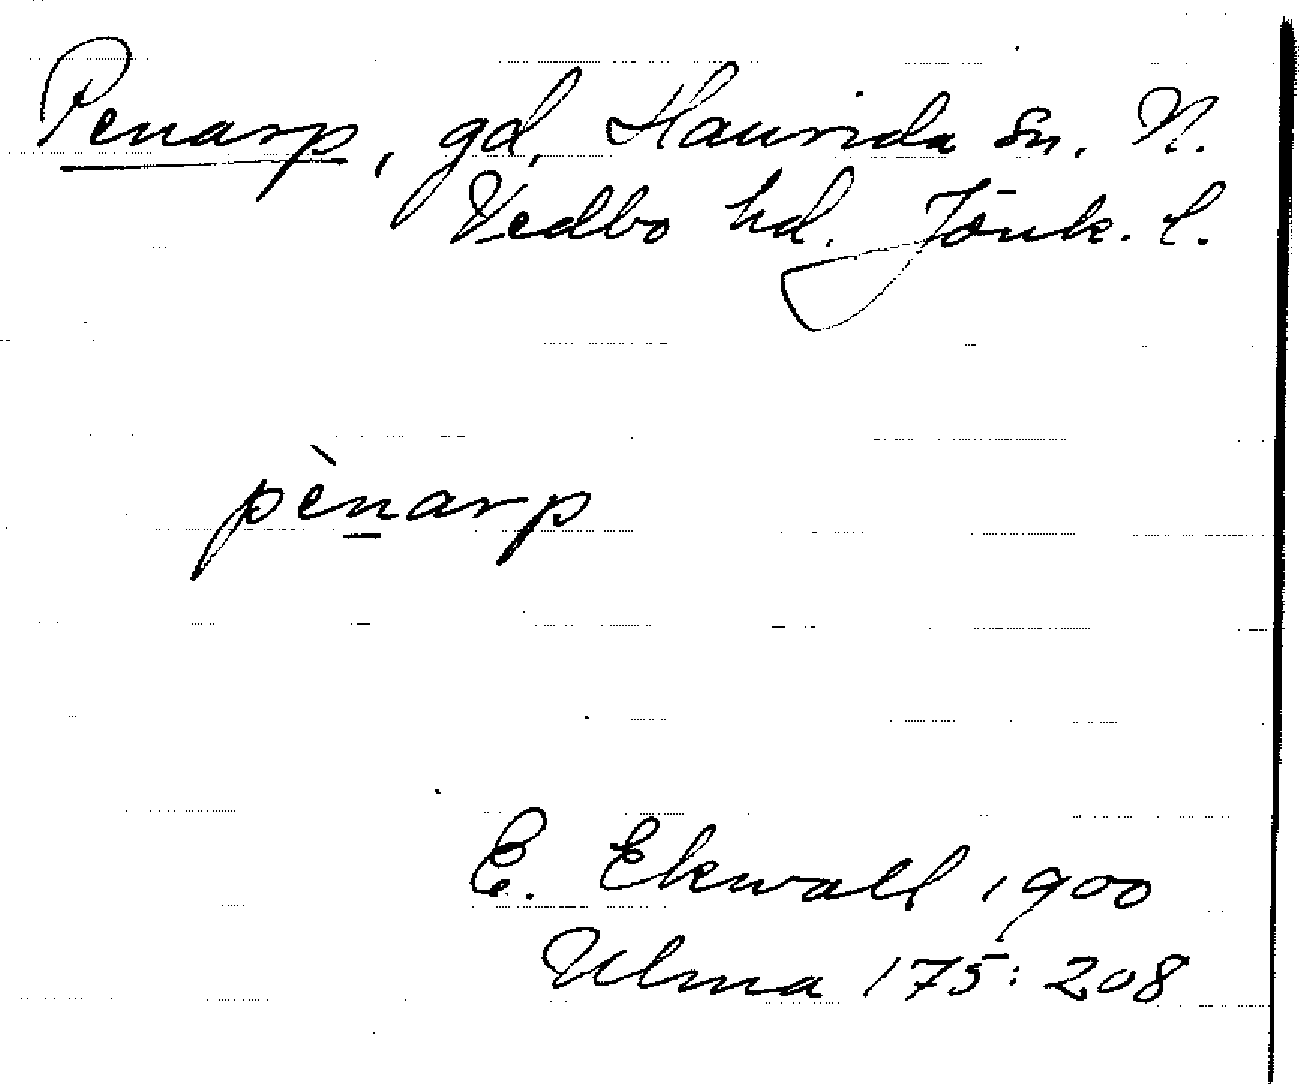 Penarp, gd, Haurida sn. N.
Vedbo hd. Jönk. l.
pènarp
E. Ekwall 1900
Ulma 175: 208